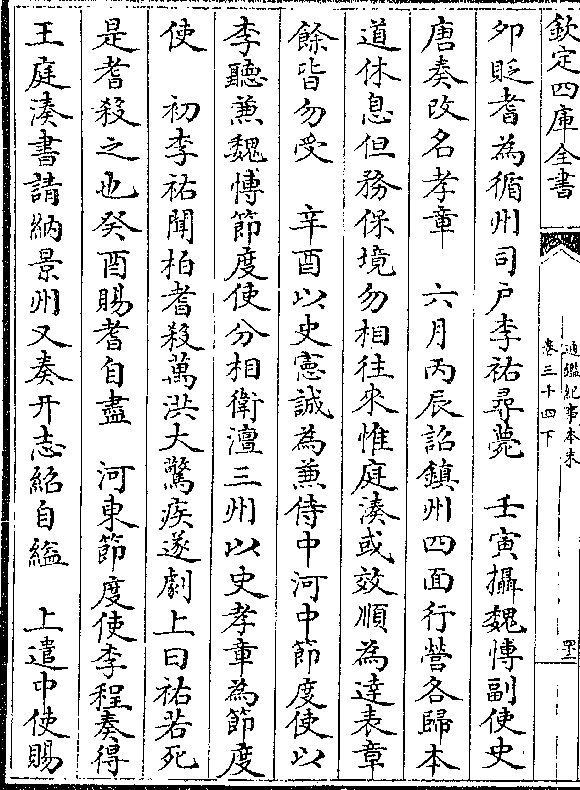 欽定四庫全書
通鑑紀事本末
卷三十四下
卯貶耆為循州司户李祐尋薨　壬寅攝魏博副使史
唐奏改名孝章　六月丙辰詔鎮州四面行營各歸本
道休息但務保境勿相往來惟庭湊或效順為達表章
餘皆勿受　辛酉以史憲誠為兼侍中河中節度使以
李聽兼魏博節度使分相衛澶三州以史孝章為節度
使　初李祐聞柏耆殺萬洪大驚疾遂劇上曰祐若死
是耆殺之也癸酉賜耆自盡　河東節度使李程奏得
王庭湊書請納景州又奏亓志紹自縊　上遣中使賜